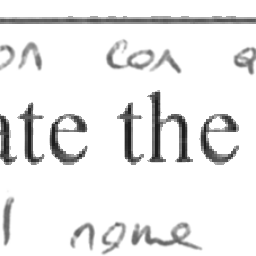 on con a
ate the
l name